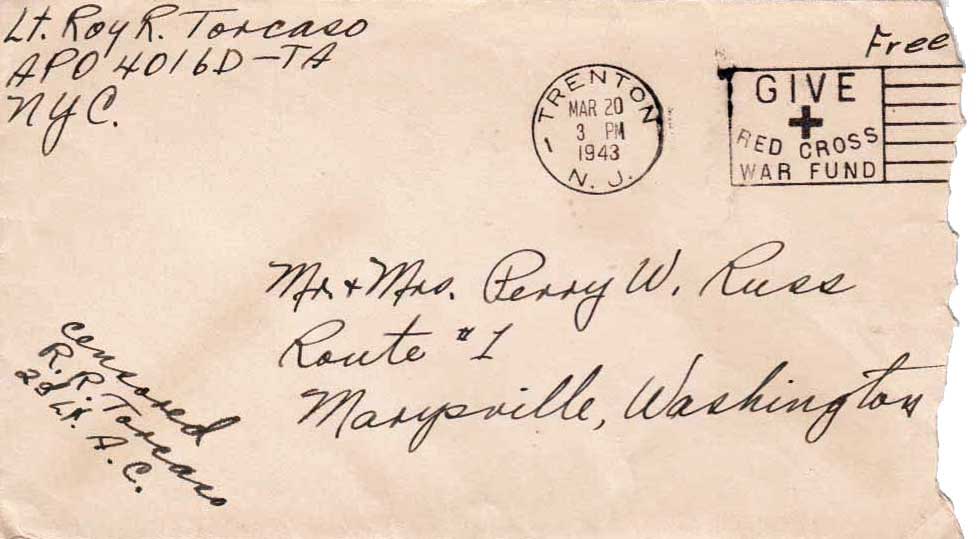 Lt. Roy R. Torcaso
APO 4016D-TA
NYC.
Free
TRENTON
MAR 20
3 PM
1943
N. J.
GIVE
RED CROSS
WAR FUND
Mr. + Mrs. Perry W. Russ
Route #1
Marysville, Washington
Censored
R. R. Torcaso
2d Lt. A. C.